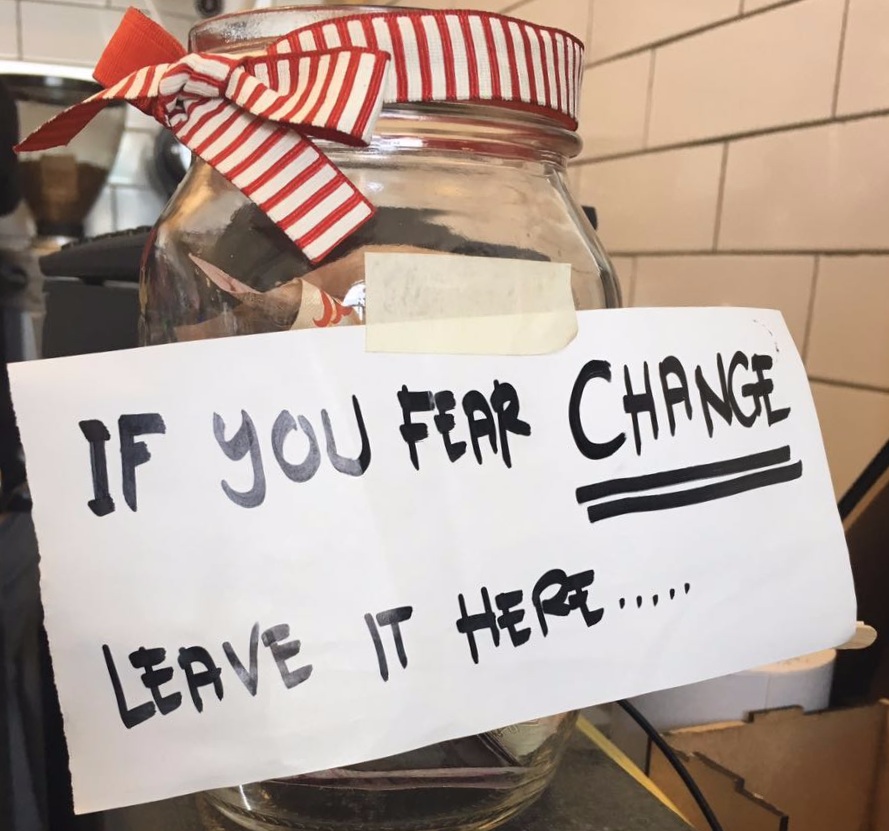 IF YOU FEAR CHANGE
LEAVE IT HERE.....